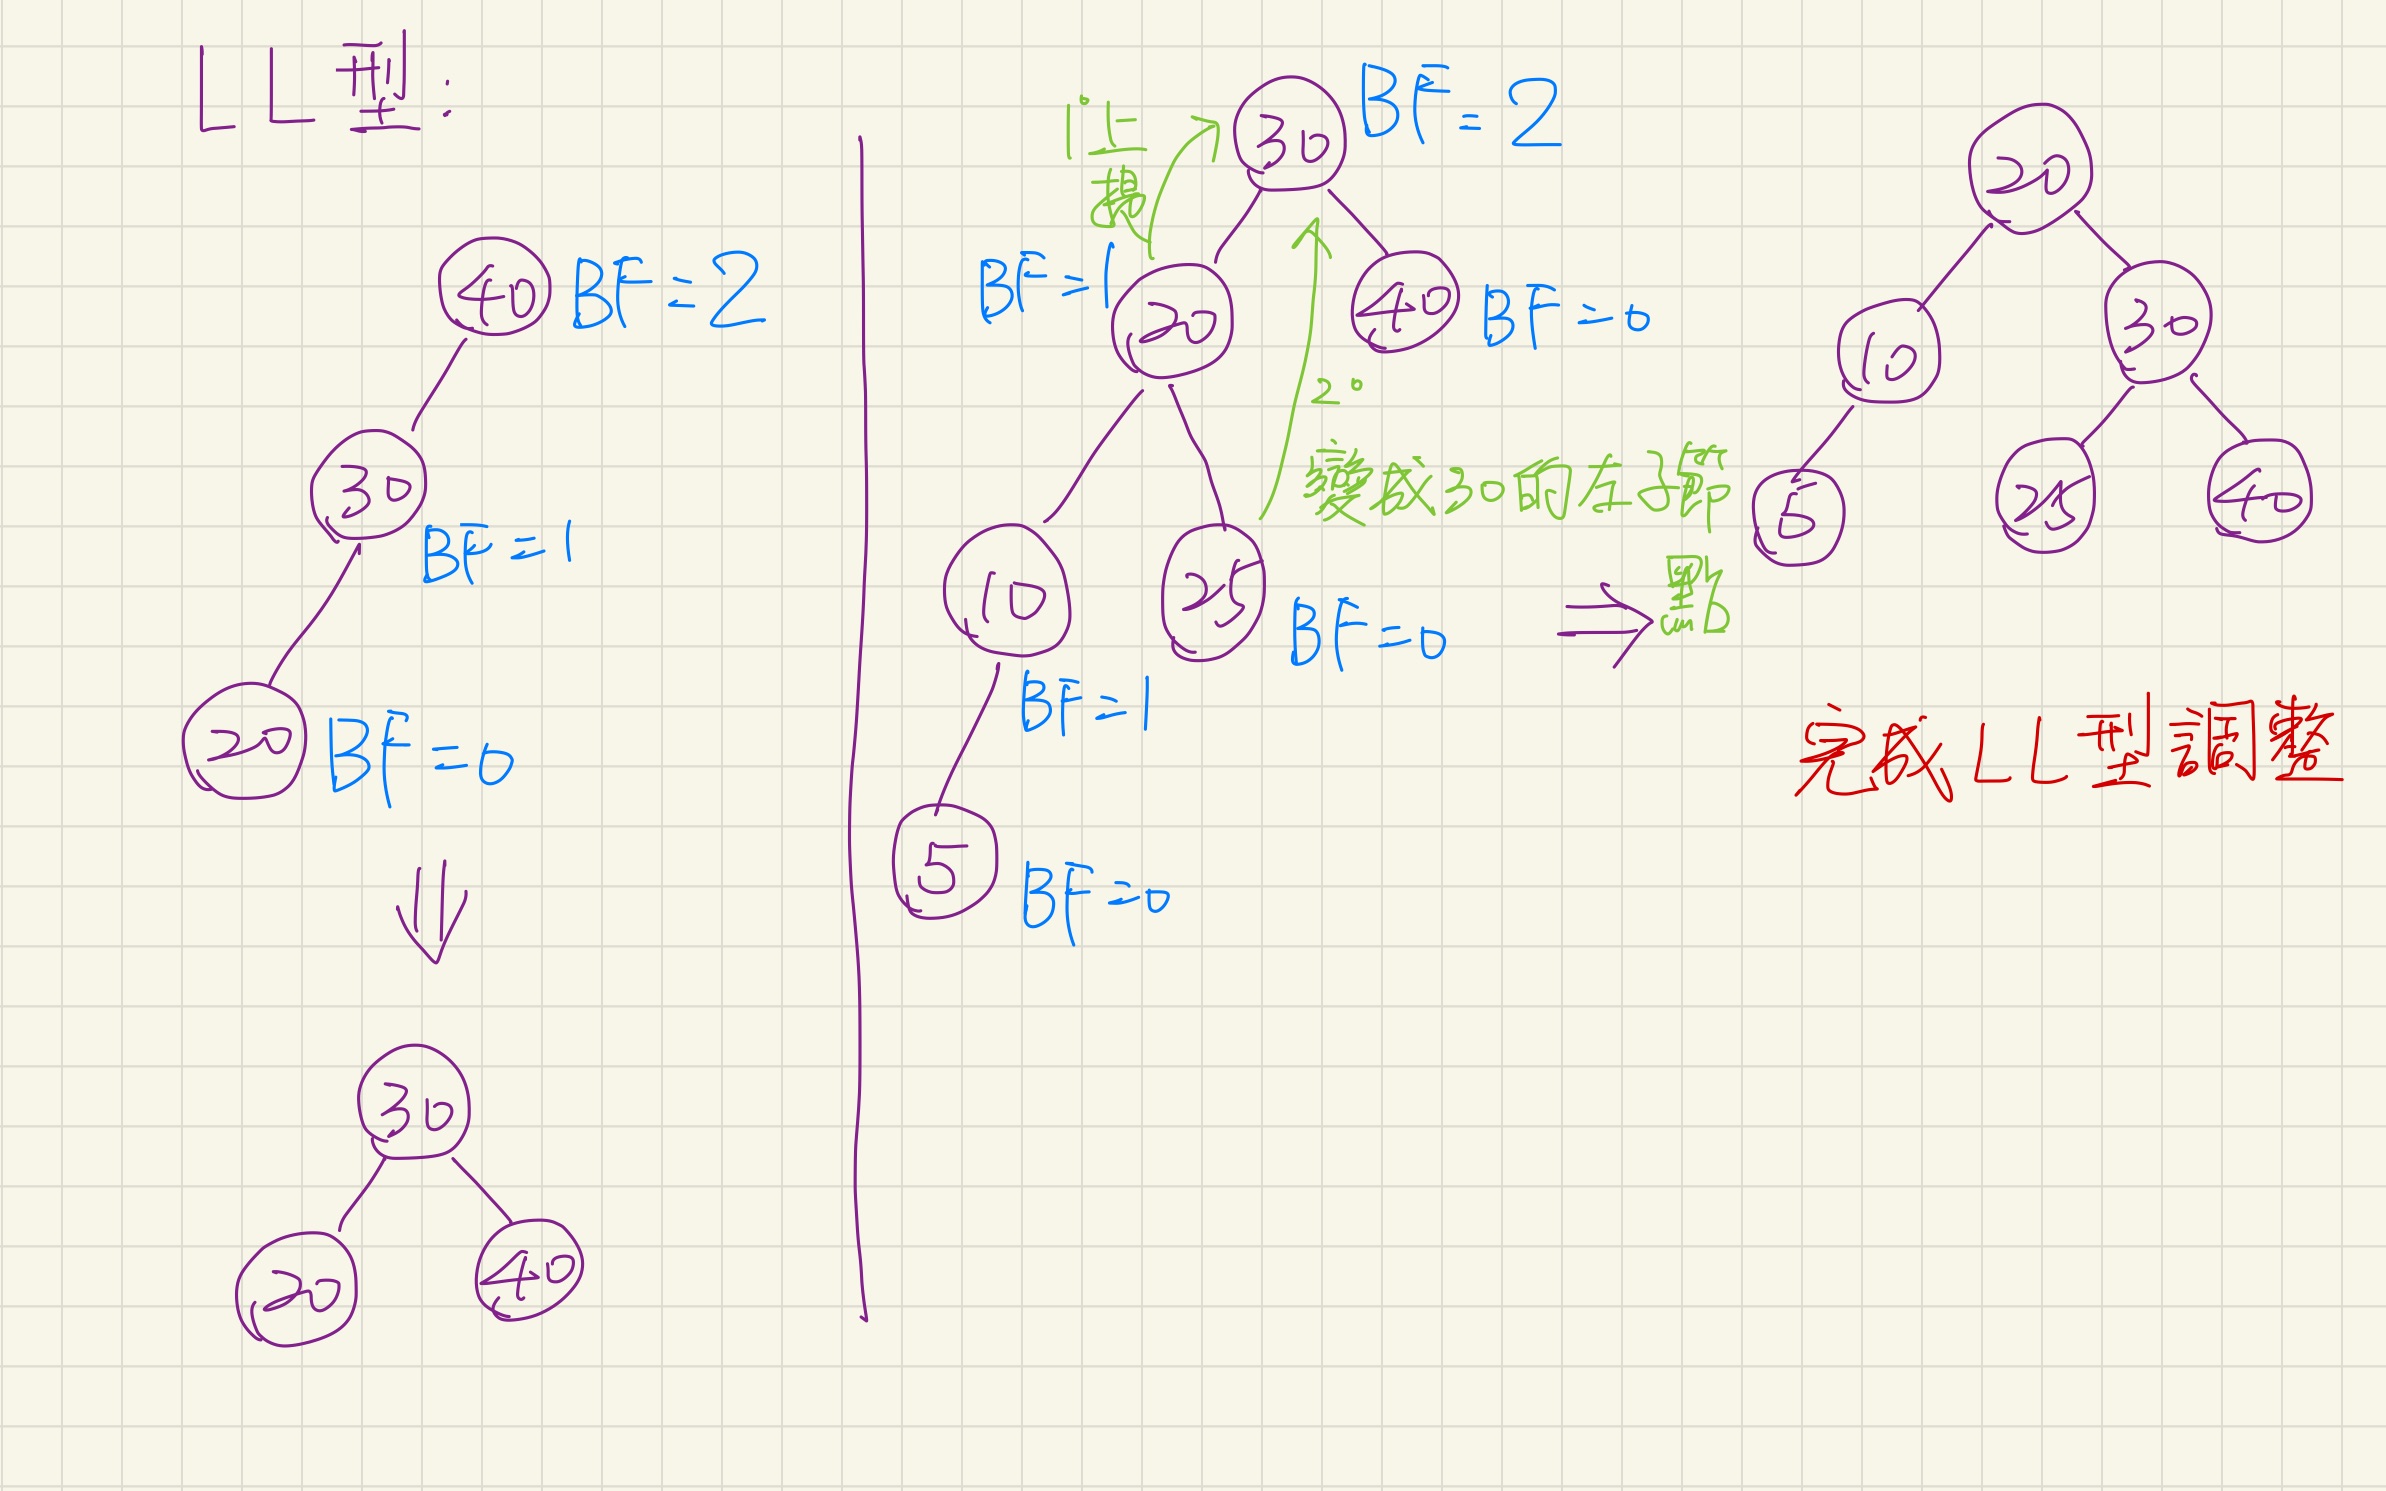 LL型:
40 BF=2
30
BF=1
20 BF=0
30
20 40
1° 上提
30 BF=2
BF=1 20 40 BF=0
2°
變成30的左子節點
10 25 BF=0
BF=1
5 BF=0
20
10 30
5 25 40
完成LL型調整